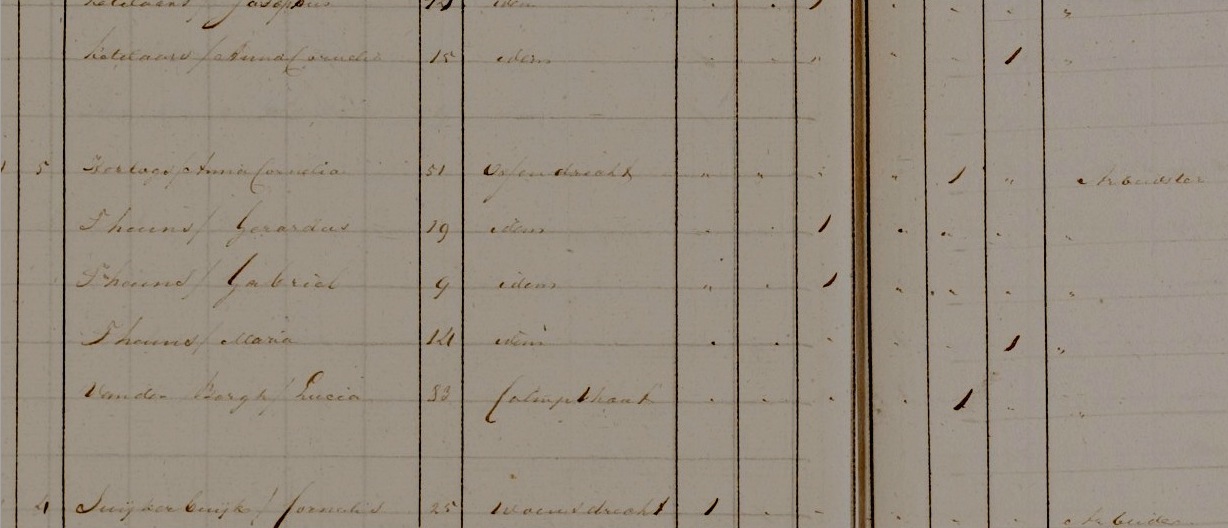 Ketelaars / Josephus 12 idem " . 1 "
Ketelaars / Anna Cornelia 15 idem " . " " " 1 "
5 Hertogs / Anna Cornelia 51 Ossendrecht " " " " 1 " Arbeidster
Theuns / Gerardus 19 idem " . 1 " " " "
Theuns / Gabriel 9 idem " . 1 " " " "
Theuns / Maria 14 idem . . . . . 1 "
Van der Bergh / Lucia 83 Calmpthout . . . . 1 " "
4 Suijkerbuijk / Cornelis 25 Woensdrecht 1 . . . . .